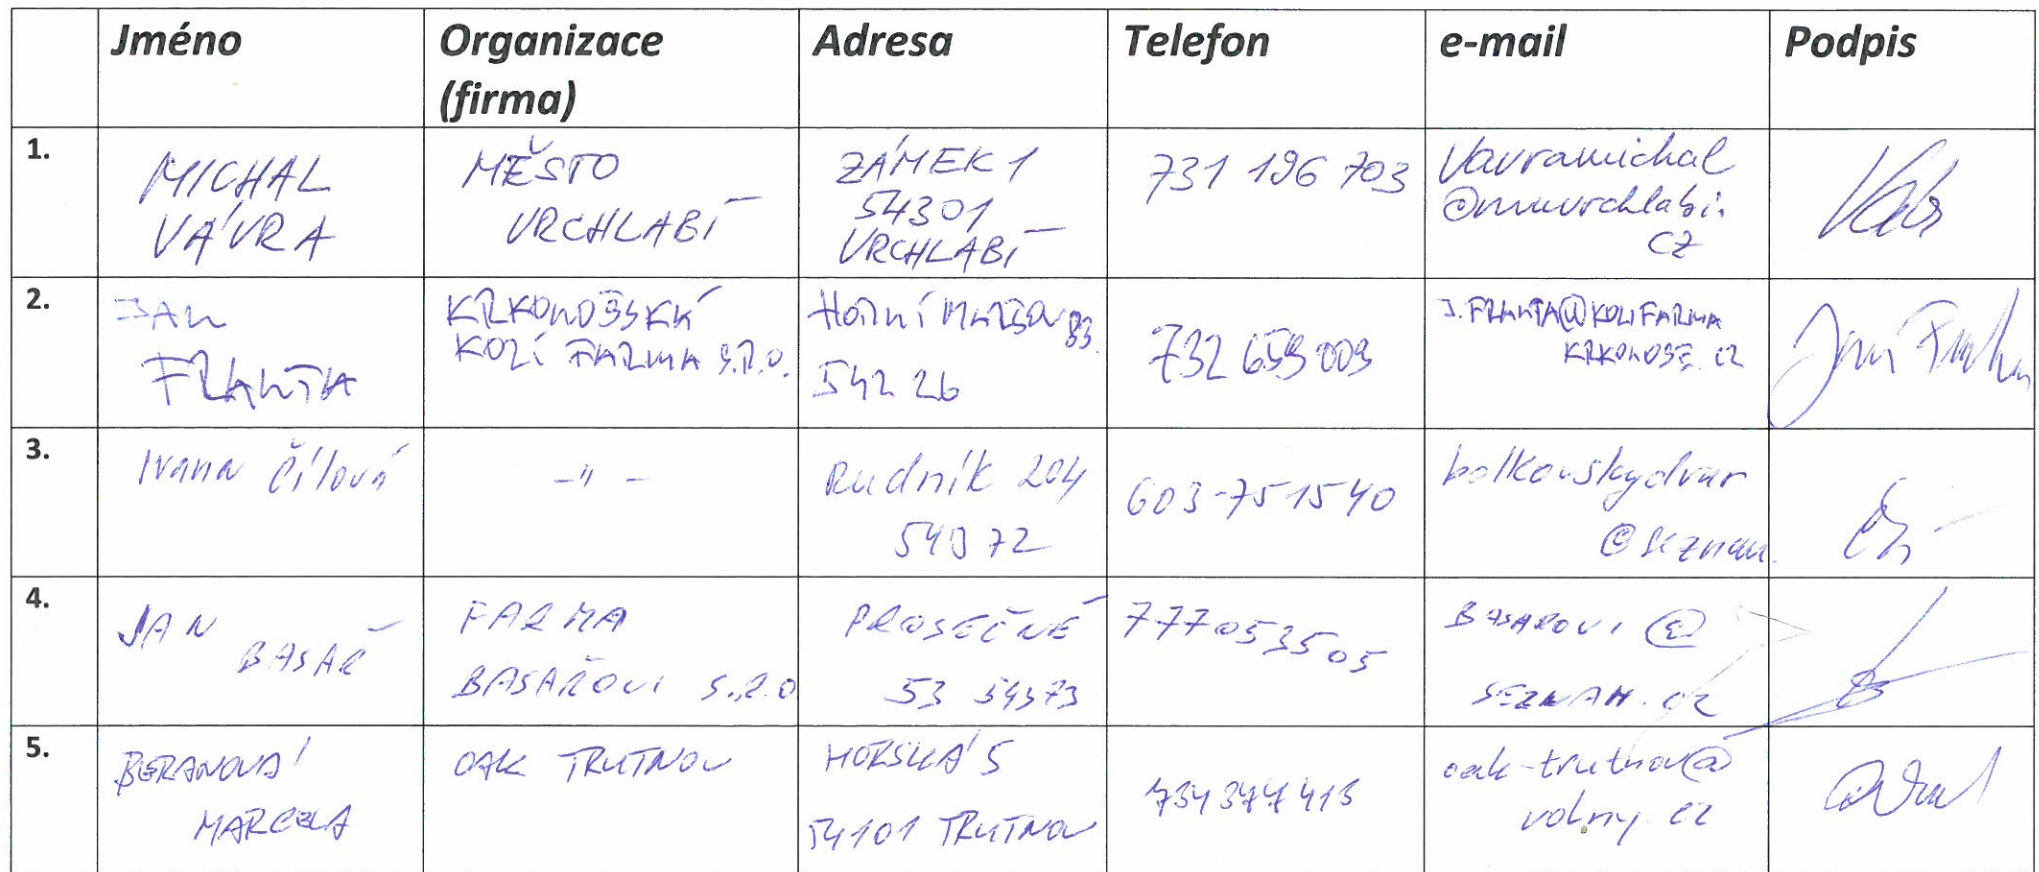 Jméno Organizace (firma) Adresa Telefon e-mail Podpis
1. MICHAL VÁVRA MĚSTO VRCHLABÍ ZÁMEK 1 54301 VRCHLABÍ 731 196 703 Vavramichal @muvrchlabi. cz
2. JAN FRANTA KRKONOŠSKÁ KOZÍ FARMA S.R.O. HORNÍ MARŠOV 83 542 26 732 659 009 J.FRANTA@KOZIFARMA KRKONOSE.CZ Jan
3. Ivana Čílová -"- Rudník 204 543 72 603-751540 bolkovskydvur @seznam.
4. JAN BASAŘ FARMA BASAŘOVI S.R.O PROSEČNÉ 53 54373 777053505 BASAROVI @ SEZNAM.CZ
5. BERANOVÁ MARCELA OAK TRUTNOV HORSKÁ 5 54101 TRUTNOV 734377413 oak-trutnov@ volny.cz